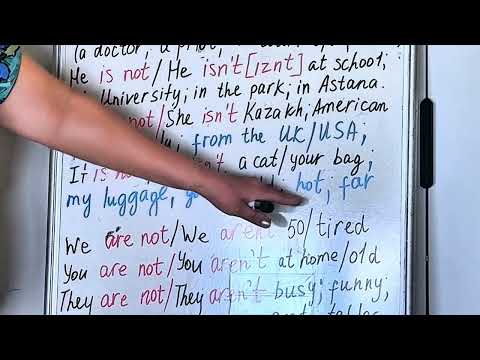 (a doctor; a pilot;
He is not/He isn't [ıznt] at school;
University; in the park; in Astana.
not/She isn't Kazakh, American
from the UK/USA;
It is a cat/your bag;
my luggage, hot; far
We are not/We aren't 50/tired
You are not/You aren't at home/old
They are not/They aren't busy; funny;